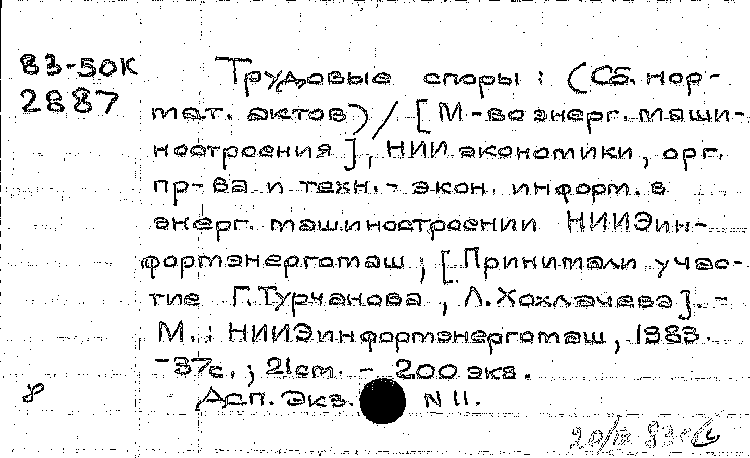 83-50К
2887
Трудовые споры: (Сб. нор-
мат. актов) / [М-во энерг. маши-
ностроения], НИИ экономики, орг.
пр-ва и техн.-экон. информ. в
энерг. машиностроении НИИЭин-
формэнергомаш; [Принимали учас-
тие Г. Турчанова, Л. Хохлачева]. -
М.: НИИЭинформэнергомаш, 1983.
-37с.; 21см. - 200 экз.
Деп. экз. N 11.